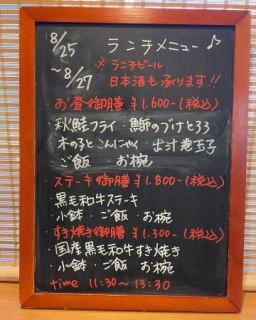 8/25
~8/27
ランチメニュー♪
※ランチビール
日本酒も承ります!!
お昼御膳 ¥1.600-(税込)
秋鮭フライ・鰤のづけとろろ
木の子とこんにゃく・出汁巻玉子
ご飯・お椀
ステーキ御膳 ¥1.800-(税込)
・黒毛和牛ステーキ
・小鉢・ご飯・お椀
すき焼き御膳 ¥1.300-(税込)
・国産黒毛和牛すき焼き
・小鉢・ご飯 お椀
time 11:30~13:30